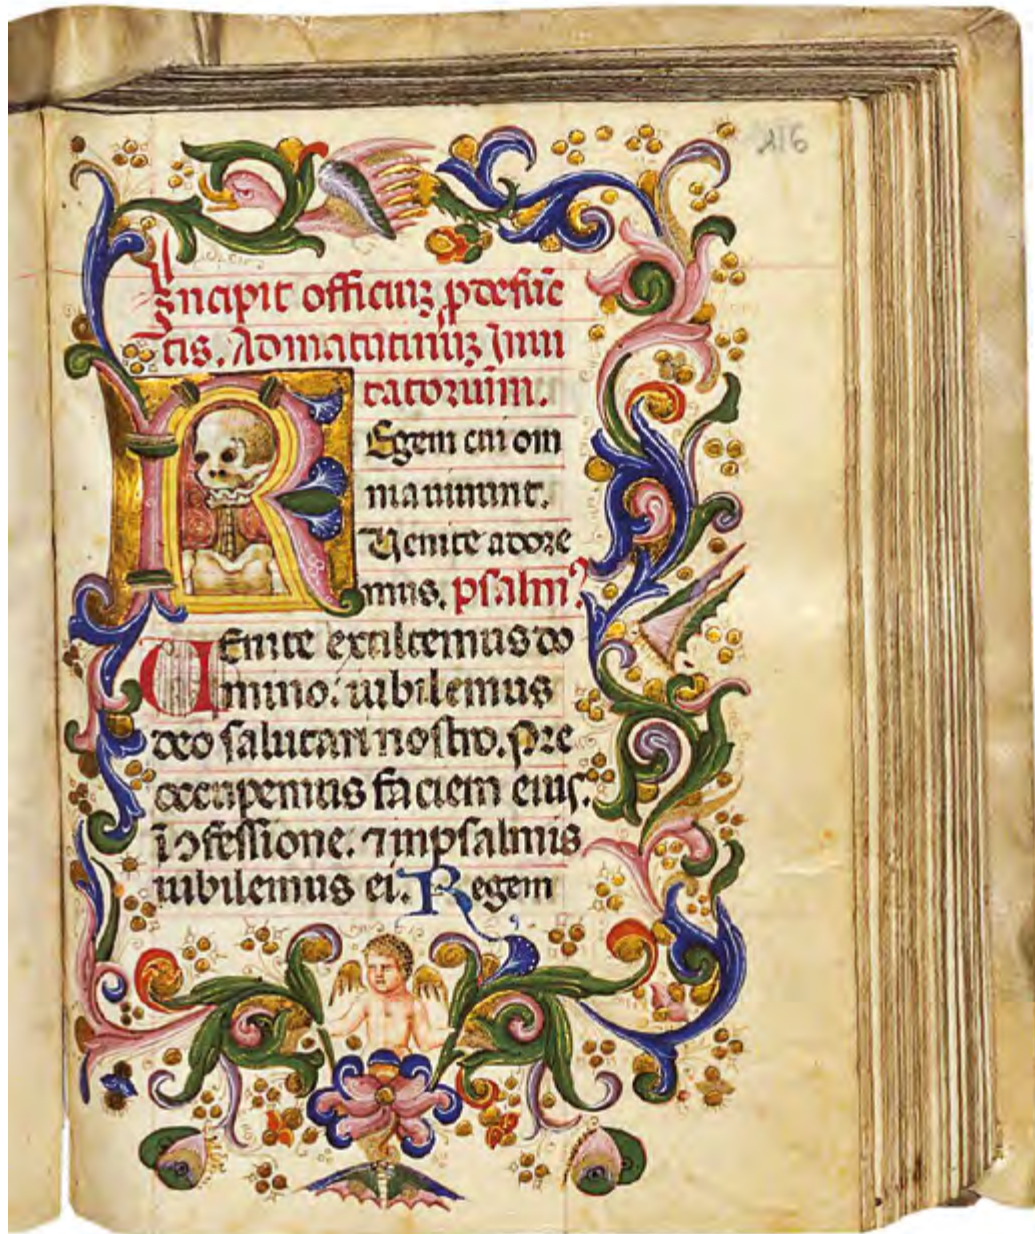 116
Incipit officiuʒ p defūc
tis. Ad matutinuʒ Inui
tatoruim.
REgem cui om
nia uiuunt.
Uenite adore
mus. psalm⁹
UEnite exultemus do
mino: iubilemus
deo salutari nostro. Pre
occupemus faciem eius.
i ↄfessione: ⁊ in psalmis
iubilemus ei. Regem